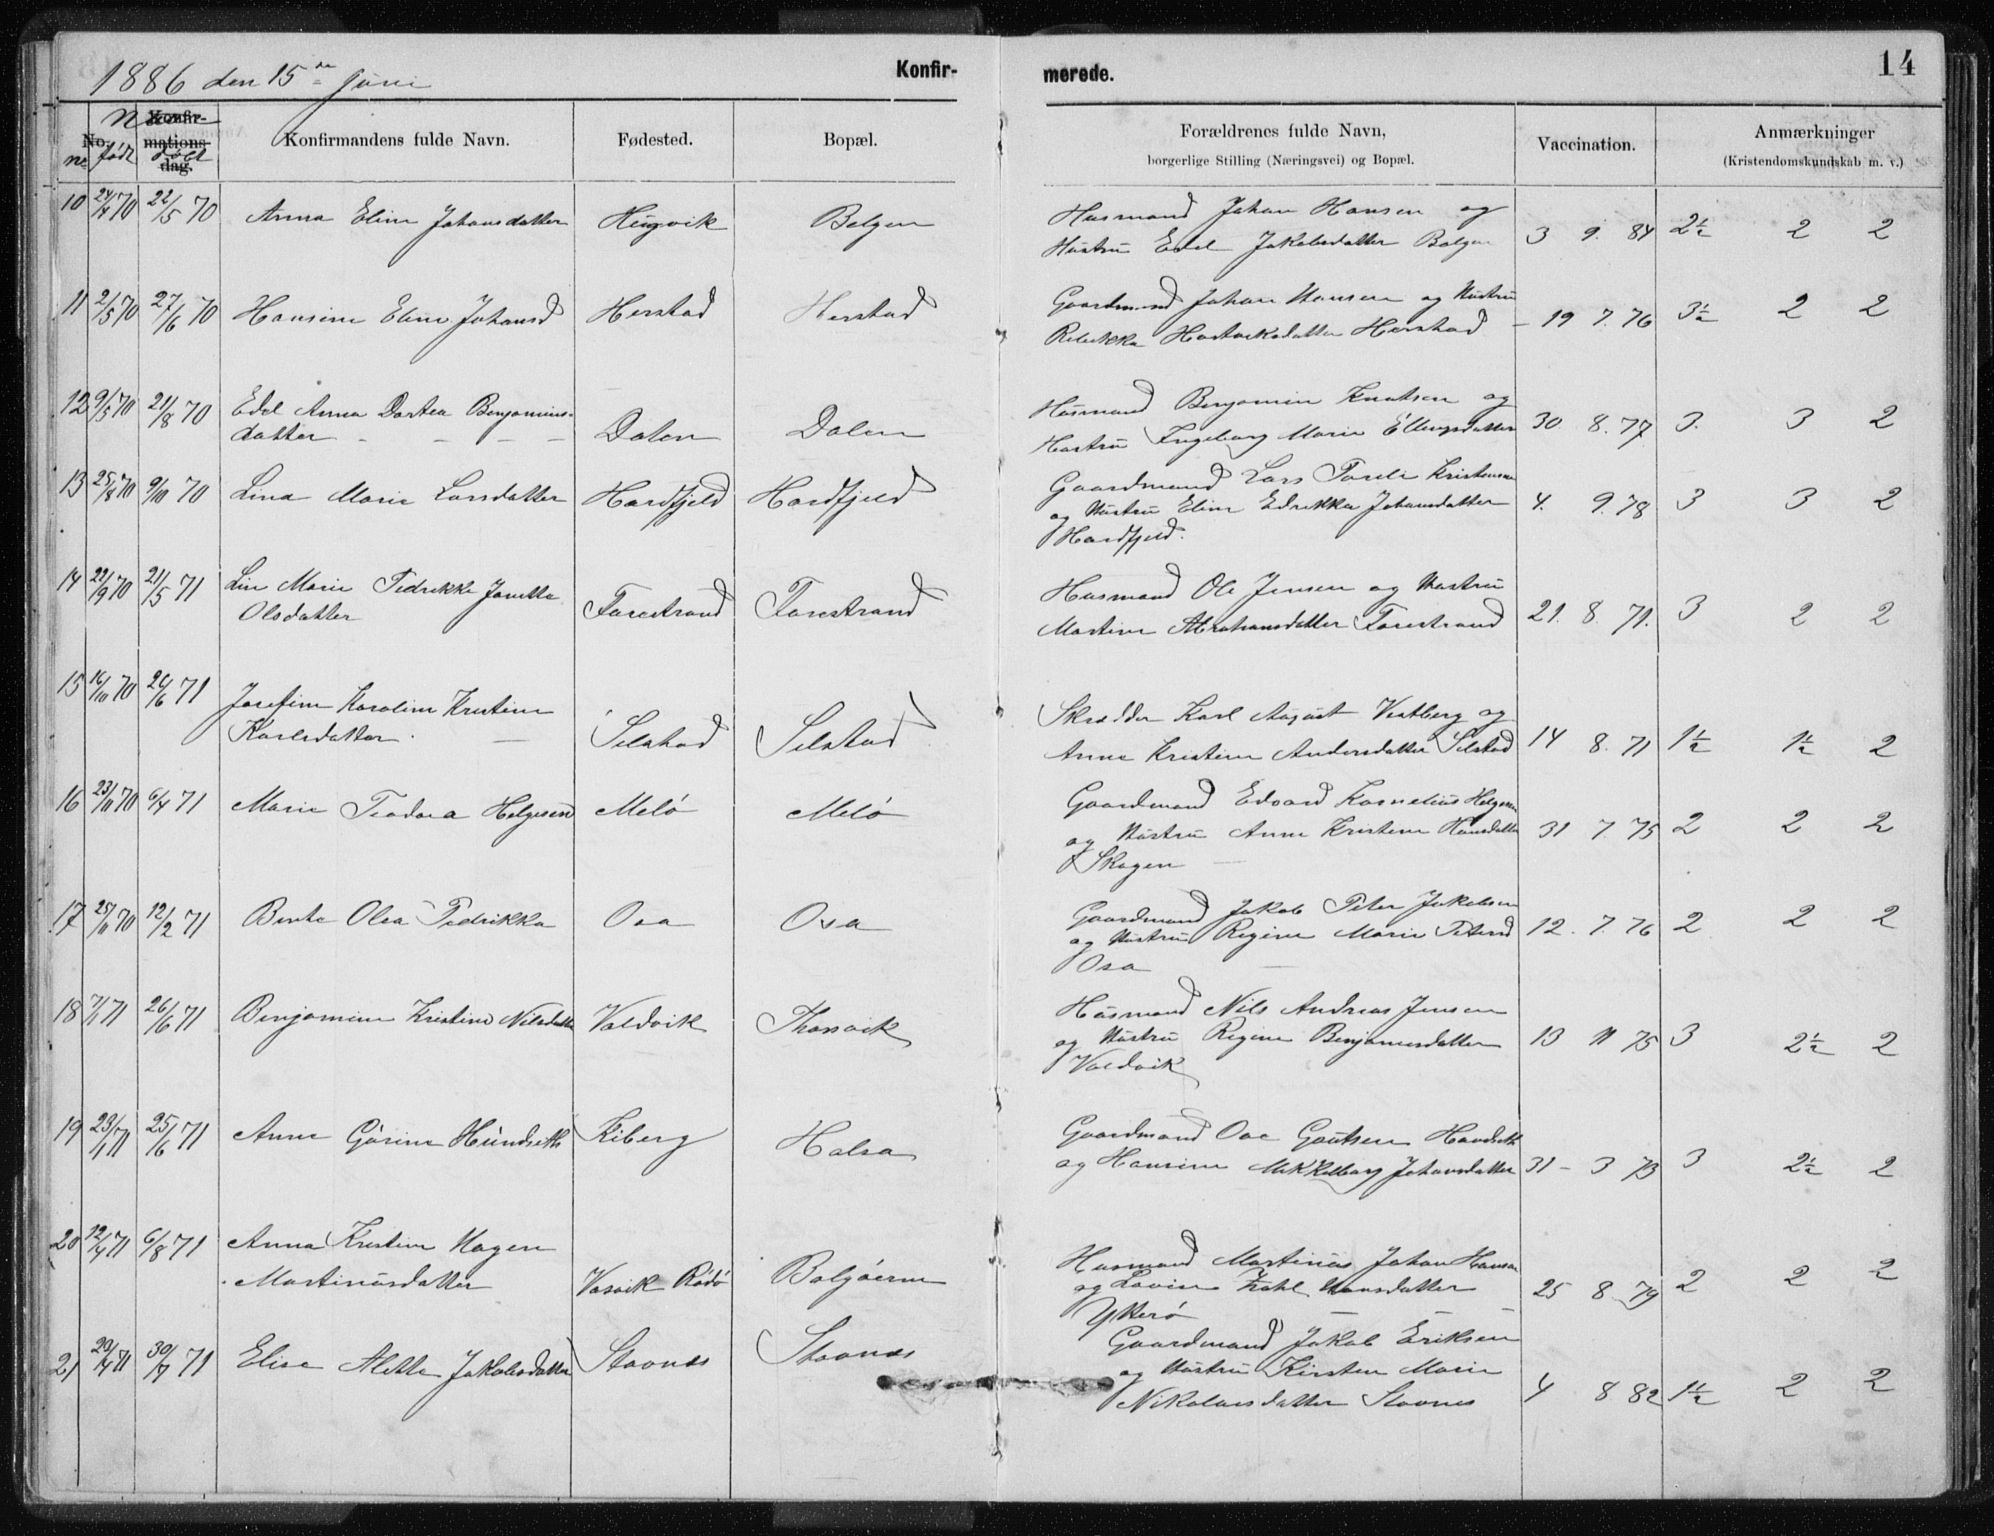 1886 den 15de Juni
Konfir-
merede.
14
No.
Konfir-
mations-
dag.
no født døbt
Konfirmandens fulde Navn.
Fødested.
Bopæl.
Forældrenes fulde Navn,
borgerlige Stilling (Næringsvei) og Bopæl.
Vaccination.
Anmærkninger
(Kristendomskundskab m. v.)
10 24/4 70 22/5 70 Anna Eline Johansdatter Heigvik Bolgen
Husmand Johan Hansen og
Hustru Edel Jakobsdatter Bolgen 3 9. 84 2½ 2 2
11 2/5 70 27/6 70 Hansine Eline Johansd Herstad Herstad
Gaardmand Johan Hansen og Hustru
Rebekka Hartviksdatter Herstad - 19 7. 76 3½ 2 2
12 9/5 70 21/8 70 Edel Anna Dortea Benjamins-
datter - - - - Dalen Dalen
Husmand Benjamin Knutsen og
Hustru Ingeborg Marie Ellingsdatter 30. 8. 77. 3. 3 2
13 25/8 70 9/10 70 Lina Marie Larsdatter Hardfjeld Hardfjeld
Gaardmand Lars Kristensen
og Hustru Eline Edrikka Johansdatter 4. 9. 78 3 3 2
Hardfjeld.
14 22/9 70 21/5 71 Line Marie Fedrikke Janetta
Olsdatter Farestrand Farestrand
Husmand Ole Jensen og Hustru
Martine Abrahamsdatter Farestrand 21. 8. 71. 3 2 2
15 16/10 70 26/6 71
Josefine Karoline Kristine
Karlsdatter. - Selstad Selstad
Skrædder Karl August Vestberg og
Anne Kristine Andersdatter Selstad 14 8. 71 1½ 1½ 2
16 23/10 70 6/4 71 Marie Teodora Helgesen Melø Melø
Gaardmand Edvard Kornelius Helgesen
og Hustru Anne Kristine Hansdatter 31 7. 75 2 2 2
Skagen -
17 25/11 70 12/2 71 Bente Olea Fedrikka Osa Osa
Gaardmand Jakob Peter Jakobsen
og Hustru Regine Marie Petersd 12. 7. 76 2 2 2
Osa -
18 7/1 71 26/6 71 Benjamine Kristine Nilsdatter Valdvik Thorsvik
Husmand Nils Andreas Jensen
og Hustru Regine Benjaminsdatter 13 11 75 3 2½ 2
Valdvik
19 23/1 71 25/6 71 Anne Gurine Hundseth Kiberg Halsa
Gaardmand Ove Gautsen Hundseth
og Hansine Mekkelborg Johansdatter 31 - 3 73 3 2½ 2
20 12/4 71 6/8 71 Anna Kristine Hagen
Martinusdatter Vasvik Rødø Bolgøerne
Husmand Martinus Johan Hansen
og Lovise Hansdatter 25 8 79 2 2 2
Ytterø - - -
21 20/4 71 30/7 71 Elise Alette Jakobsdatter Stavnes Stavnes
Gaardmand Jakob Eriksen
og Hustru Kirsten Marie
Nikolaisdatter Stavnes 4 8 82 1½ 2 2